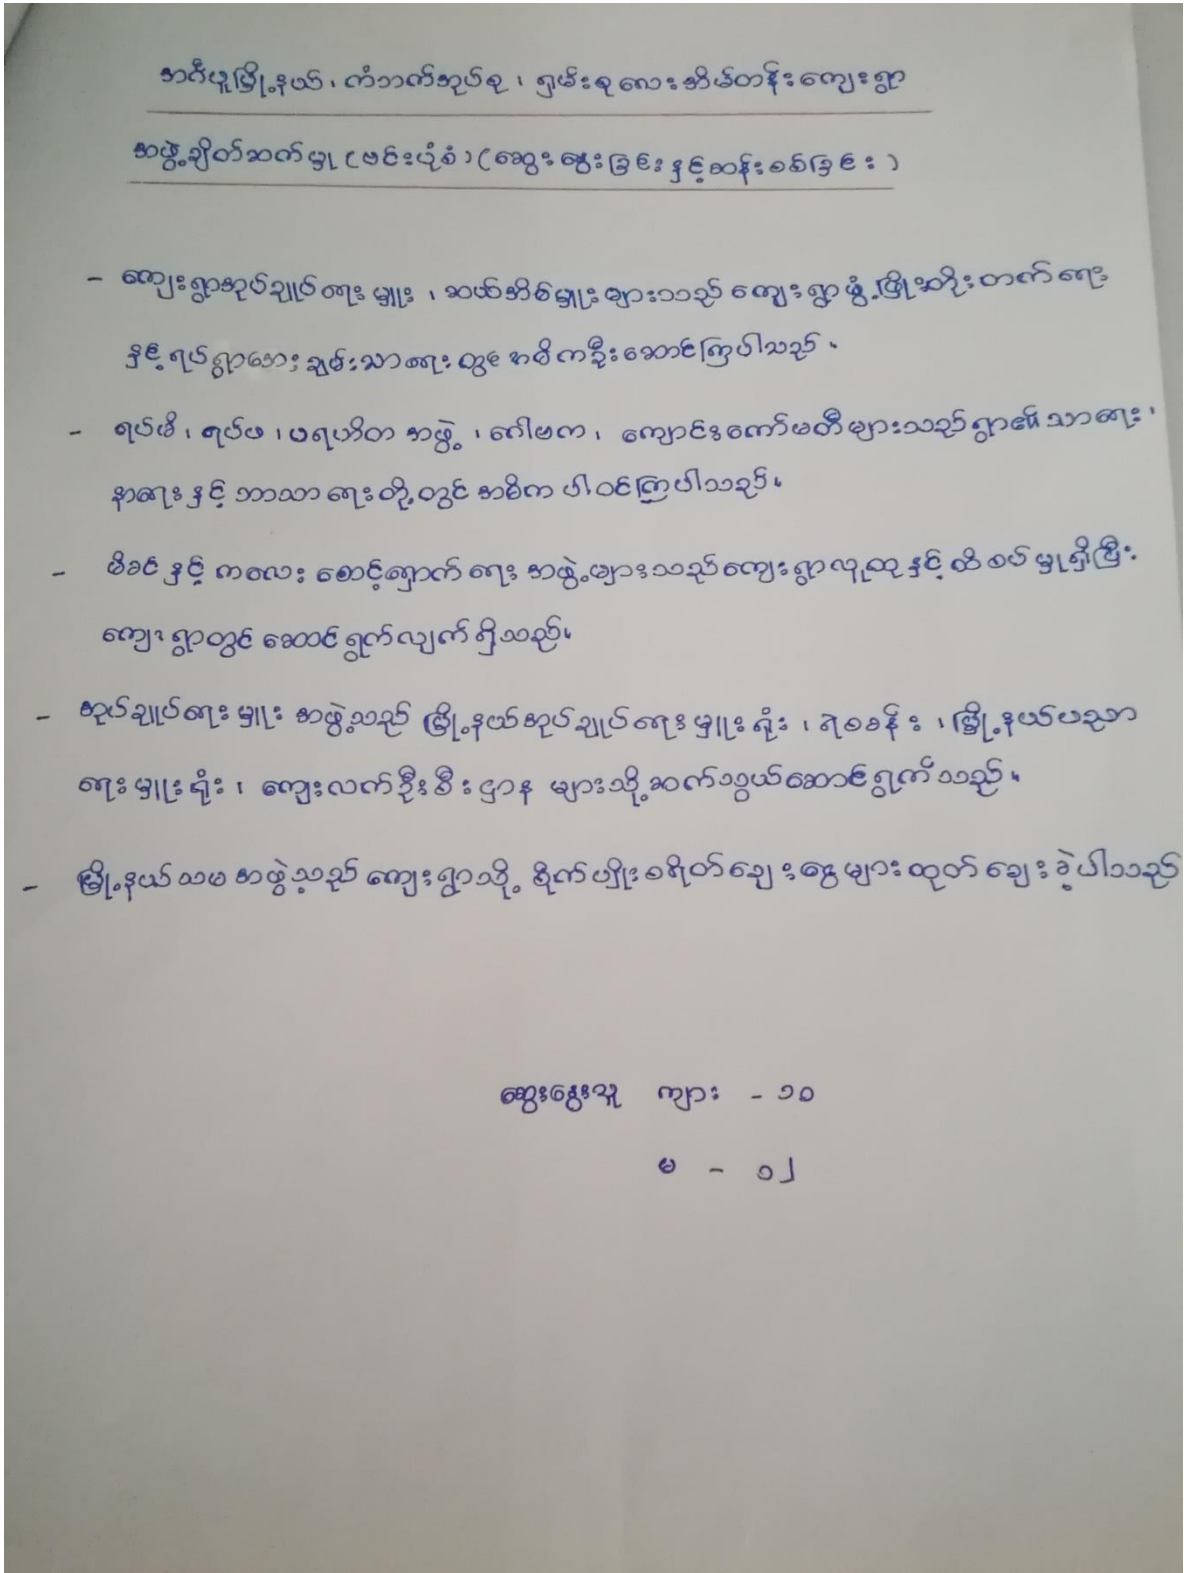 အင်္ဂပူမြို့နယ်၊ ကံဘက်အုပ်စု၊ ရှမ်းစုလေးအိမ်တန်းကျေးရွာ
အဖွဲ့ချိတ်ဆက်မှု (ဗင်းပုံစံ) (ဆွေးနွေးခြင်းနှင့်ဆန်းစစ်ခြင်း)
- ကျေးရွာအုပ်ချုပ်ရေးမှူး၊ ဆယ်အိမ်မှူးများသည် ကျေးရွာဖွံ့ဖြိုးတိုးတက်ရေး
နှင့် ရပ်ရွာအေးချမ်းသာရေးတွင် အဓိကဦးဆောင်ကြပါသည်။
- ရပ်မိ၊ ရပ်ဖ၊ ပရဟိတ အဖွဲ့၊ ဂေါပက၊ ကျောင်းကော်မတီများသည် ရွာ၏ သာရေး၊
နာရေးနှင့် ဘာသာရေးတို့တွင် အဓိက ပါဝင်ကြပါသည်။
- မိခင်နှင့် ကလေး စောင့်ရှောက်ရေး အဖွဲ့များသည် ကျေးရွာလူထုနှင့် ထိစပ်မှုရှိပြီး
ကျေးရွာတွင် ဆောင်ရွက်လျက်ရှိသည်။
- အုပ်ချုပ်ရေးမှူး အဖွဲ့သည် မြို့နယ်အုပ်ချုပ်ရေးမှူးရုံး၊ ရဲစခန်း၊ မြို့နယ်ပညာ
ရေးမှူးရုံး၊ ကျေးလက်ဦးစီးဌာန များသို့ ဆက်သွယ်ဆောင်ရွက်သည်။
- မြို့နယ်သမအဖွဲ့သည် ကျေးရွာသို့ စိုက်ပျိုးစရိတ်ချေးငွေများထုတ်ချေးခဲ့ပါသည်
ဆွေးနွေးသူ ကျား - ၁၀
မ - ၁၂